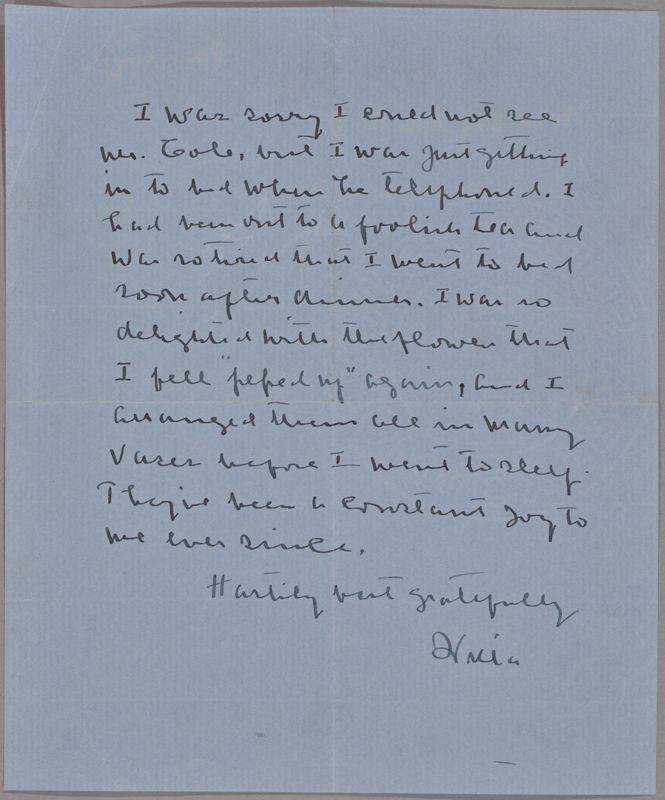 I was sorry I could not see
Mr. Cole, but I was just getting
in to bed when he telephoned. I
had been out to a foolish tea and
was so tired that I went to bed
soon after dinner. I was so
delighted with the flowers that
I fell "pepped up" again, and I
arranged them all in many
vases before I went to sleep.
They've been a constant joy to
me ever since.
Hastily but gratefully